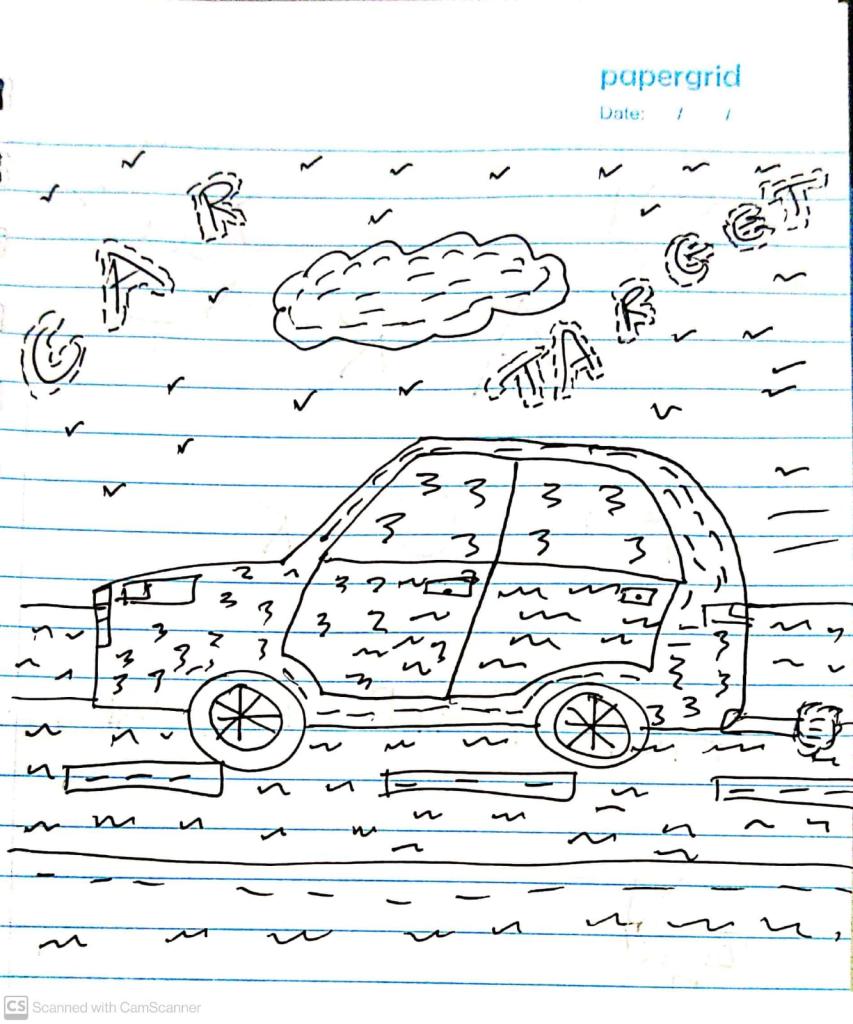 papergrid
Date: / /
CAR
TARGET
CS Scanned with CamScanner